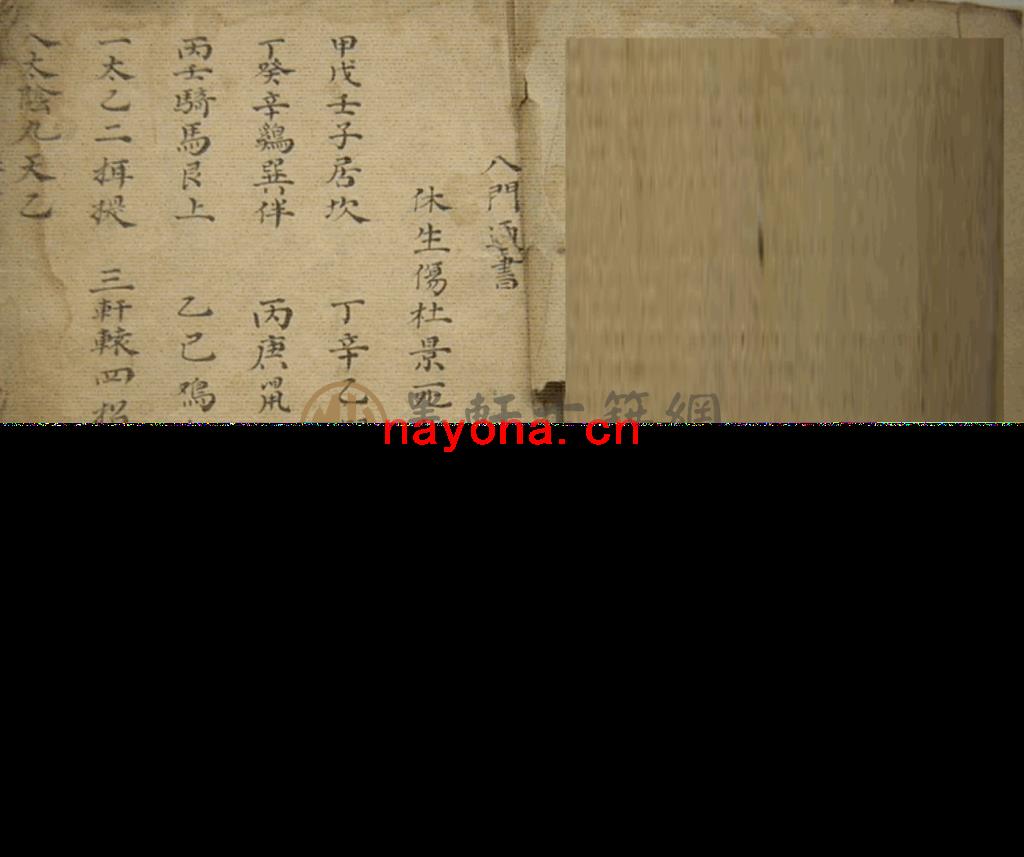 八門通書
休生傷杜景
甲戊壬子居坎 丁辛乙
丁癸辛鷄巽伴 丙庚鼠
丙壬騎馬艮上 乙己鳮
一太乙二㨉提 三軒轅四招
八太陰九天乙
nayona.cn